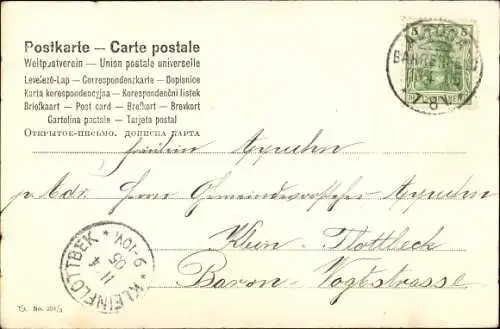 Postkarte — Carte postale
Weltpostverein — Union postale universelle
Levelező-Lap — Correspondenzkarte — Dopisnice
Karta korespondencyjna — Korespondenčni listek
Briefkaart — Post card — Brefkort — Brevkort
Cartolina postale — Tarjeta postal
Открытое письмо. дописна карта
Fräulein Appuhn
p. Adr. Herrn Gemeindevorsteher Appuhn
Klein-Flottbeck
Baron-Vogtstrasse
KLEINFLOTTBEK
11 4
05
* 9-10V. *
ALTONA
BAHRENFELD
7-8V.
5 5